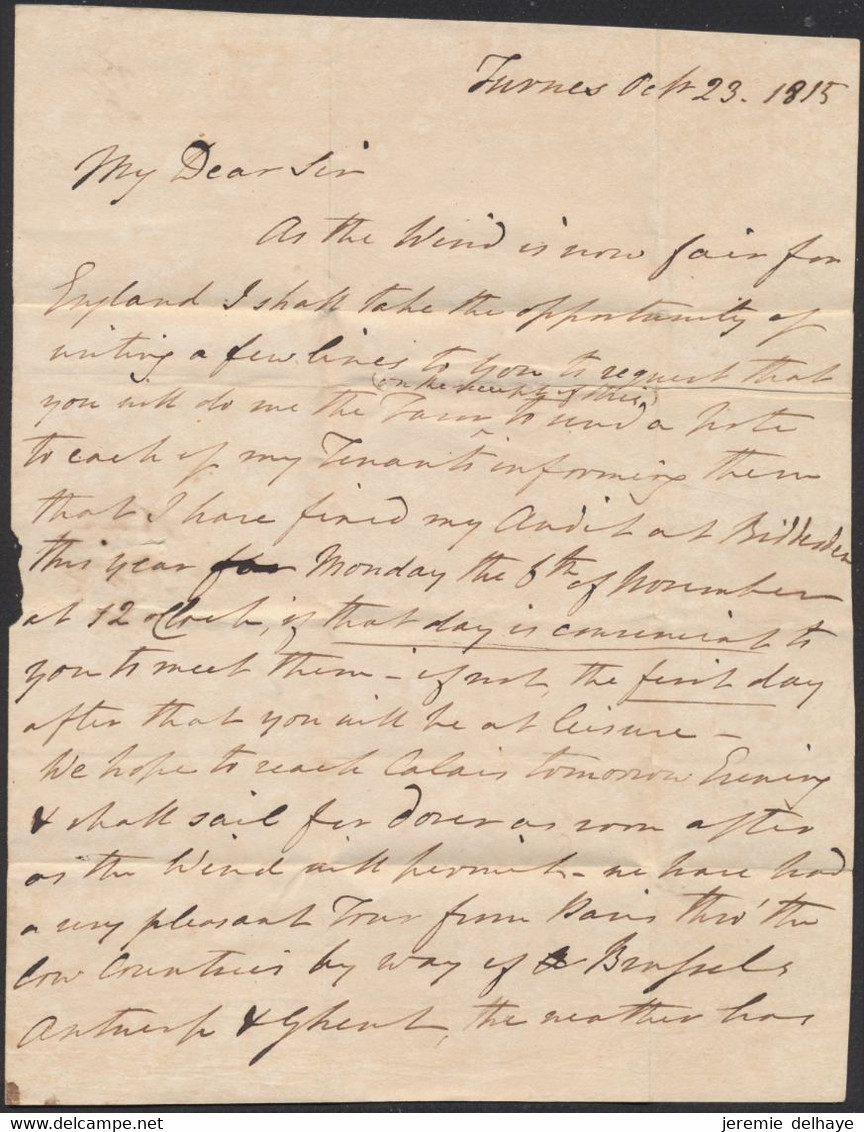 Furnes Octr 23. 1815
My Dear Sir
As the Wind is now fair for
England I shall take the opportunity of
writing a few lines to You to request that
(on the receipt of this)
you will do me the Favor to send a Note
to each of my Tenants informing them
that I have fixed my Audit at Biddesden
this year for Monday the 6th of November
at 12 oClock, if that day is convenient to
you to meet them - if not, the first day
after that you will be at leisure -
We hope to reach Calais tomorrow Evening
& shall sail for Dover as soon after
as the Wind will permit - we have had
a very pleasant Tour from Paris thro' the
Low Countries by way of Brussels
Antwerp & Ghent, the weather has
www.delcampe.net
jeremie delhaye